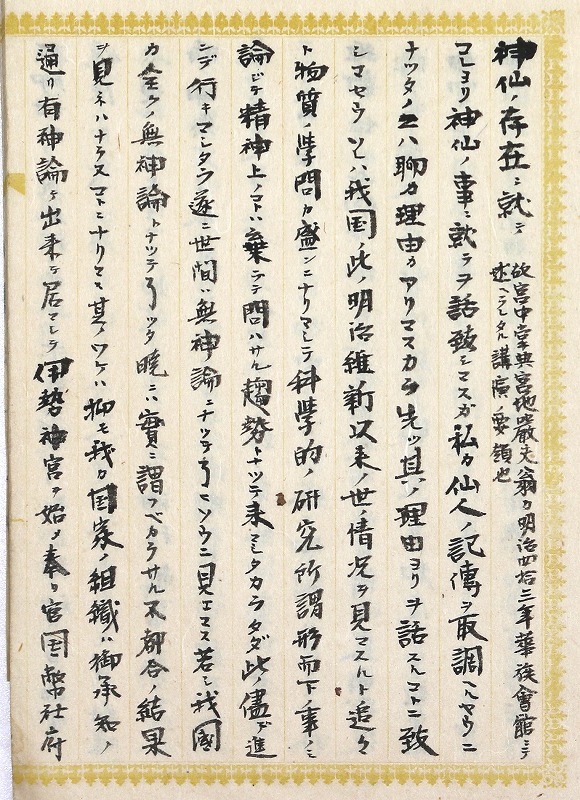 神仙ノ存在ニ就テ
故宮中掌典宮地嚴夫翁カ明治四拾三年華族會館ニテ
述ヘラレタル講演ノ要領也
コレヨリ神仙ノ事ニ就テヲ話致シマスガ私カ仙人ノ記傳ヲ取調ヘルヤウニ
ナツタノニハ聊カ理由カアリマスカラ先ツ其ノ理由ヨリヲ話スルコトニ致
シマセウソレハ我国ノ此ノ明治維新以来ノ世ノ情况ヲ見マスルト追々
ト物質ノ學問カ盛ンニナリマシテ科學的ノ研究所謂形而下ノ事ノミ
論ジテ精神上ノコトハ棄テテ問ハサル趨勢トナツテ来マシタカラタダ此ノ儘デ進
ンデ行キマシタラ遂ニ世間ハ無神論ニナツテ了ヒソウニ見エマス若シ我國
カ全クノ無神論トナツテ了ツタ曉ニハ實ニ謂フベカラサル不都合ノ結果
ヲ見ネハナラヌコトニナリマス其ノワケハ抑モ我カ国家ノ組織ハ御承知ノ
通リ有神論デ出来テ居マシテ伊勢神宮ヲ始メ奉リ官国幣社府